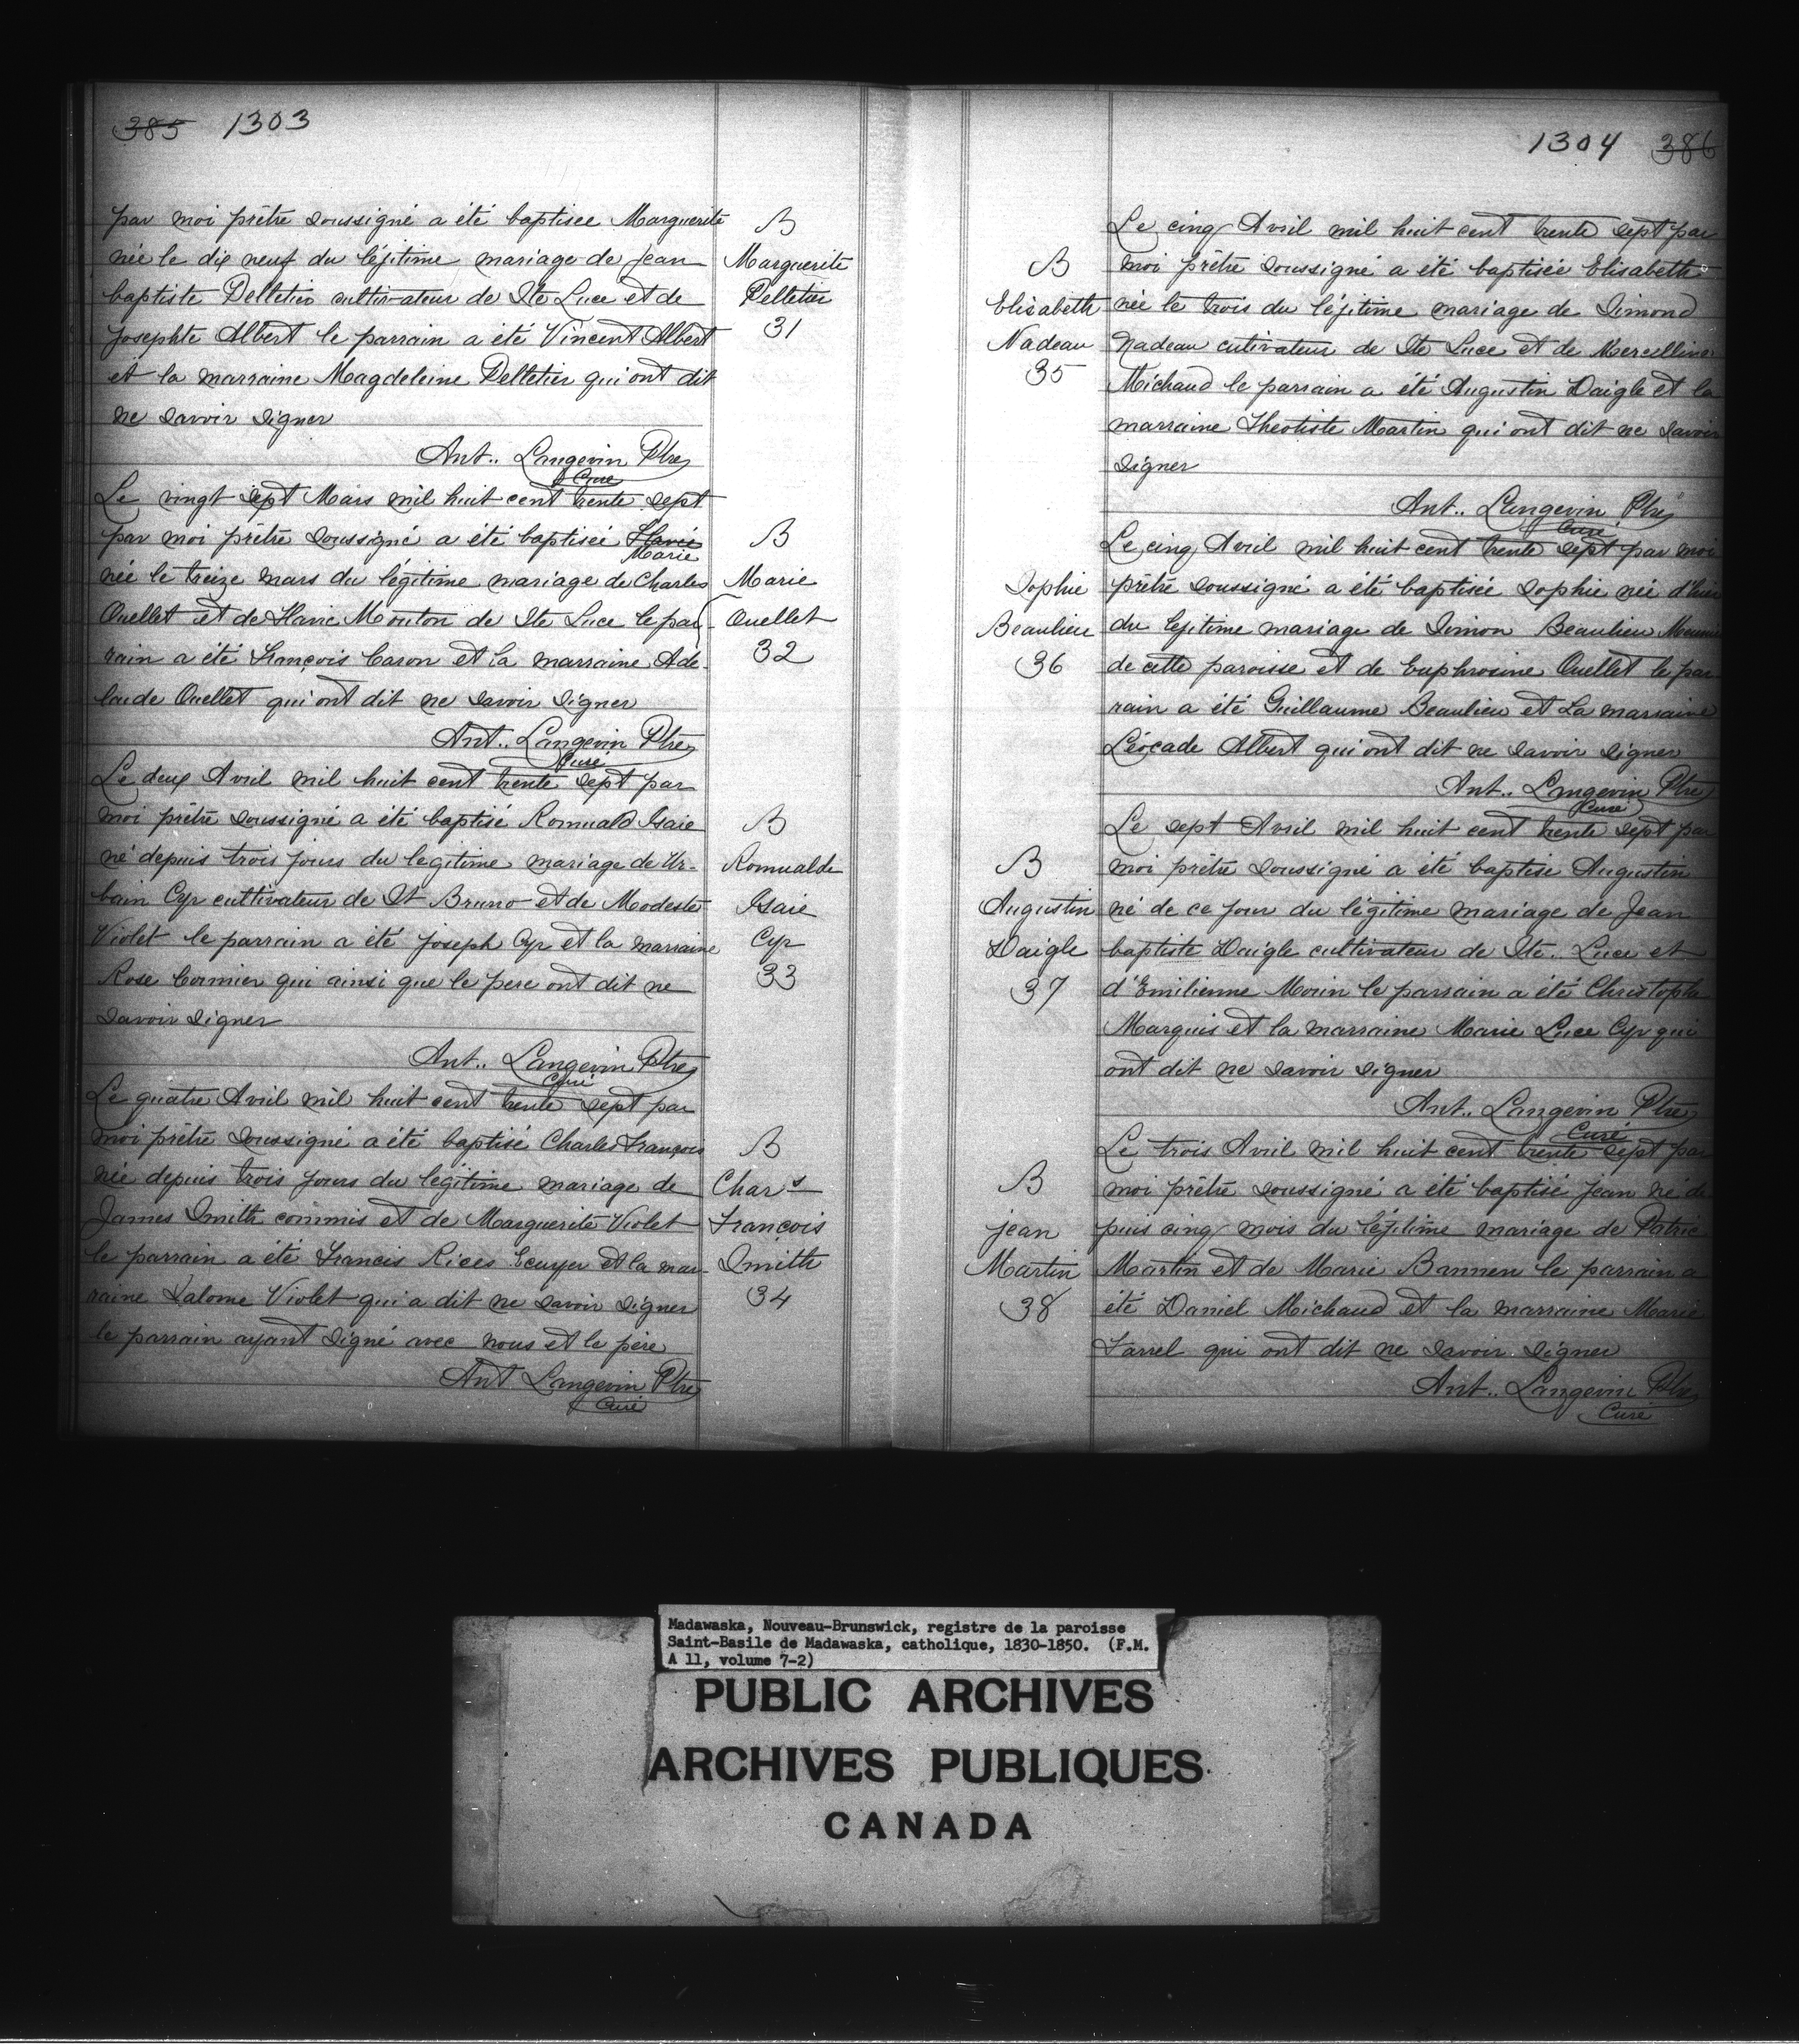 385 1303
par moi prêtre soussigné a été baptisee Marguerite
née le dix neuf du légitime mariage de Jean
baptiste Pelletier cultivateur de Ste Luce et de
Josephte Albert le parrain a été Vincent Albert
et la marraine Magdeleine Pelletier qui ont dit
ne savoir signer
Ant.. Langevin Ptre
Curé
B
Marguerite
Pelletier
31
Le vingt sept Mars mil huit cent trente sept
par moi prêtre soussigné a été baptisée Flavie
Marie
née le treize mars du légitime mariage de Charles
Ouellet et de Flavie Mouton de Ste Luce le par
rain a été François Caron et la marraine Ade-
laide Ouellet qui ont dit ne savoir signer
Ant.. Langevin Ptre
Curé
B
Marie
Ouellet
32
Le deux Avril mil huit cent trente sept par
moi prêtre soussigné a été baptisé Romuald Isaie
né depuis trois jours du legitime mariage de Ur-
bain Cyr cultivateur de St Bruno et de Modeste
Violet le parrain a été Joseph Cyr et la marraine
Rose Cormier qui ainsi que le pere ont dit ne
savoir signer
Ant.. Langevin Ptre
Curé
B
Romualde
Isaie
Cyr
33
Le quatre Avril mil huit cent trente sept par
moi prêtre soussigné a été baptisé Charles François
née depuis trois jours du légitime mariage de
James Smith commis et de Marguerite Violet
le parrain a été Francis Rices Ecuyer et la mar-
raine Salome Violet qui a dit ne savoir signer
le parrain ayant signé avec nous et le père
Ant Langevin Ptre
Curé
B
Chars
François
Smith
34
1304 386
Le cinq Avril mil huit cent trente sept par
moi prêtre soussigné a été baptisée Elisabeth
née le trois du légitime mariage de Simond
Nadeau cutivateur de Ste Luce et de Mercelline
Michaud le parrain a été Augustin Daigle et la
marraine Theotiste Martin qui ont dit ne savoir
signer
Ant.. Langevin Ptre
Curé
B
Elisabeth
Nadeau
35
Le cinq Avril mil huit cent trente sept par moi
prêtre soussigné a été baptisée Sophie née d'hier
du legitime mariage de Simon Beaulieu
de cette paroisse et de Euphrosine Ouellet le par
rain a été Guillaume Beaulieu et La marraine
Léocade Albert qui ont dit ne savoir signer
Ant.. Langevin Ptre
Curé
Sophie
Beaulieu
36
Le sept Avril mil huit cent trente sept par
moi prêtre soussigné a été baptisé Augustin
né de ce jour du légitime mariage de Jean
baptiste Daigle cultivateur de Ste.. Luce et
d'Emilienne Morin le parrain a été Christophe
Marquis et la marraine Marie Luce Cyr qui
ont dit ne savoir signer
Ant.. Langevin Ptre
Curé
B
Augustin
Daigle
37
Le trois Avril mil huit cent trente sept par
moi prêtre soussigné a été baptisé Jean né de
puis cinq mois du légitime mariage de Patric
Martin et de Marie Bannen le parrain a
été Daniel Michaud et la marraine Marie
Farrel qui ont dit ne savoir signer
Ant.. Langevin Ptre
Curé
B
jean
Martin
38
Madawaska, Nouveau-Brunswick, registre de la paroisse
Saint-Basile de Madawaska, catholique, 1830-1850. (F.M.
A 11, volume 7-2)
PUBLIC ARCHIVES
ARCHIVES PUBLIQUES
CANADA